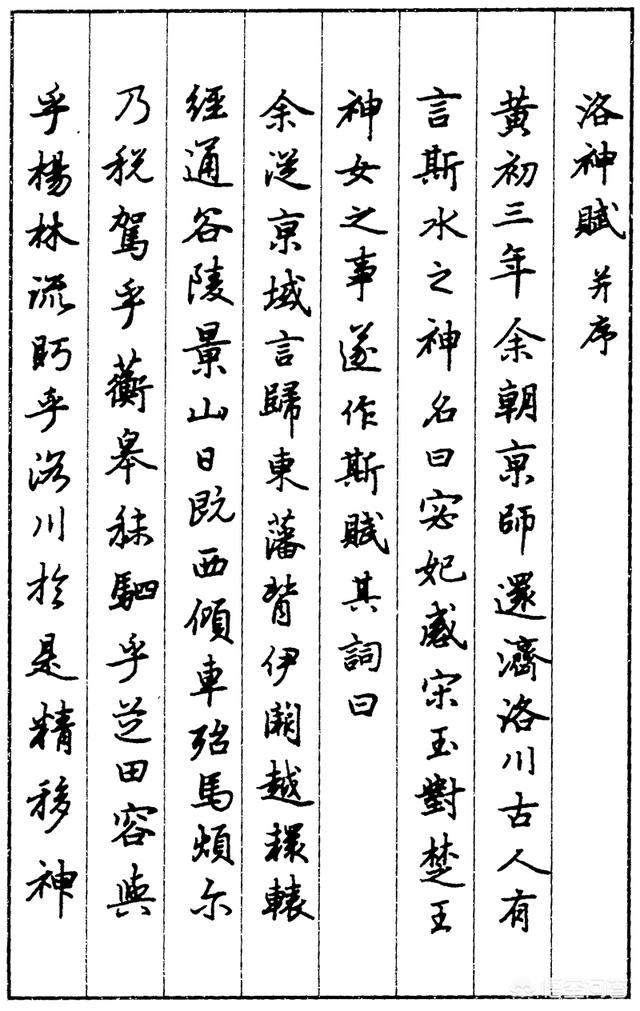 洛神賦 并序
黃初三年余朝京師還濟洛川古人有
言斯水之神名曰宓妃感宋玉對楚王
神女之事遂作斯賦其詞曰
余從京域言歸東藩背伊闕越轘轅
經通谷陵景山日既西傾車殆馬煩尔
乃税駕乎蘅皋秣駟乎芝田容與
乎楊林流眄乎洛川於是精移神
悟空问答